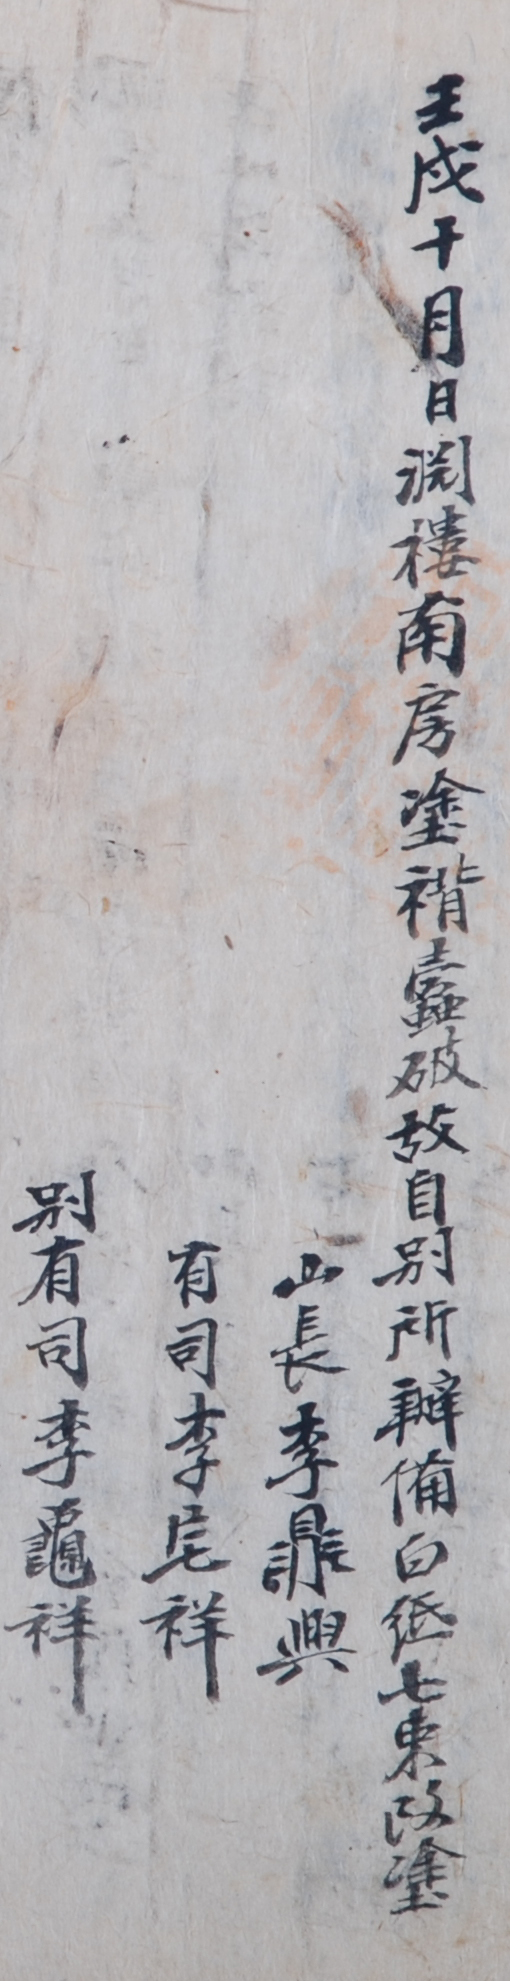 壬戌十月日淵楼南房塗褙蠹破故自別所辦備白紙七束改塗
山長李鼎興
有司李宅祥
別有司李龜祥